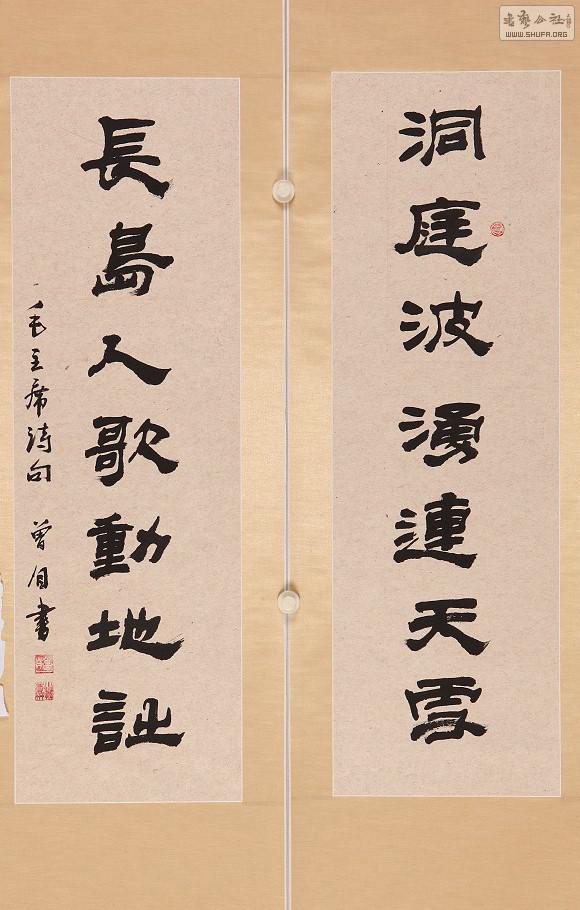 书艺公社
WWW.SHUFA.ORG
洞庭波湧連天雪
長島人歌動地詩
毛主席詩句 曾書